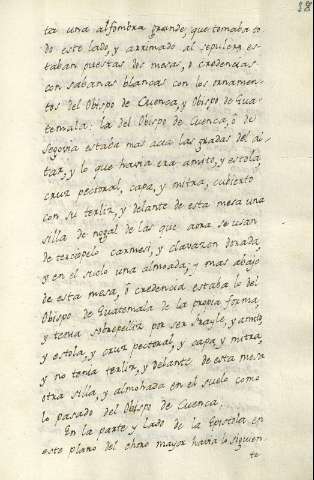 38
ter una alfombra grande, que tomaba to
do este lado, y arrimado al sepulcro es
taban puestas dos mesas, o credencias
con sabanas blancas con los ornamen
tos del Obispo de Cuenca, y Obispo de Gua
temala: la del Obispo de Cuenca, ô de
Segovia estaba mas acia las gradas del al
tar, y lo que havia era amito, y estola,
cruz pectoral, capa, y mitra, cubierto
con su terliz, y delante de esta mesa una
silla de nogal de las que aora se usan
de terciopelo carmesi, y clavazon dorada,
y en el suelo una almoada; y mas abajo
de esta mesa, ô credencia estaba lo del
Obispo de Guatemala de la propia forma,
y tenia sobrepelliz por ser frayle, y amito,
y estola, y cruz pectoral, y capa, y mitra,
y no tenia terliz, y delante de esta mesa
otra silla, y almohada en el suelo como
lo pasado del Obispo de Cuenca.
En la parte y lado de la Epistola en
este plano del choro mayor havia lo siguien
te